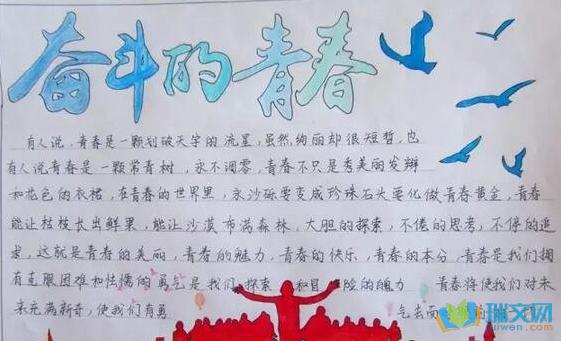 奋斗的青春
有人说,青春是一颗划破天宇的流星,虽然绚丽却很短暂,也
有人说青春是一颗常青树,永不凋零,青春不只是秀美丽发辫
和花色的衣裙,在青春的世界里,永沙砾要变成珍珠石头要化做青春黄金,青春
能让枯枝长出鲜果,能让沙漠布满森林,大胆的探索,不倦的思考,不停的追
求,这就是青春的美丽,青春的魅力,青春的快乐,青春的本分,青春是我们拥
有克服困难和怯懦的勇气是我们 探索 和冒 险的魄力 青春将使我们对未
来充满新奇,使我们有勇 气去面
瑞文网
ruiwen.com